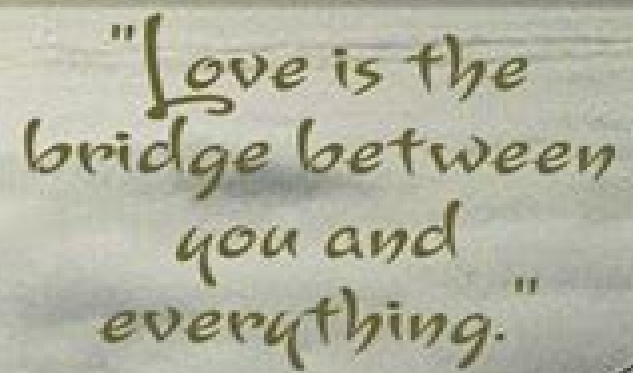 "Love is the
bridge between
you and
everything."